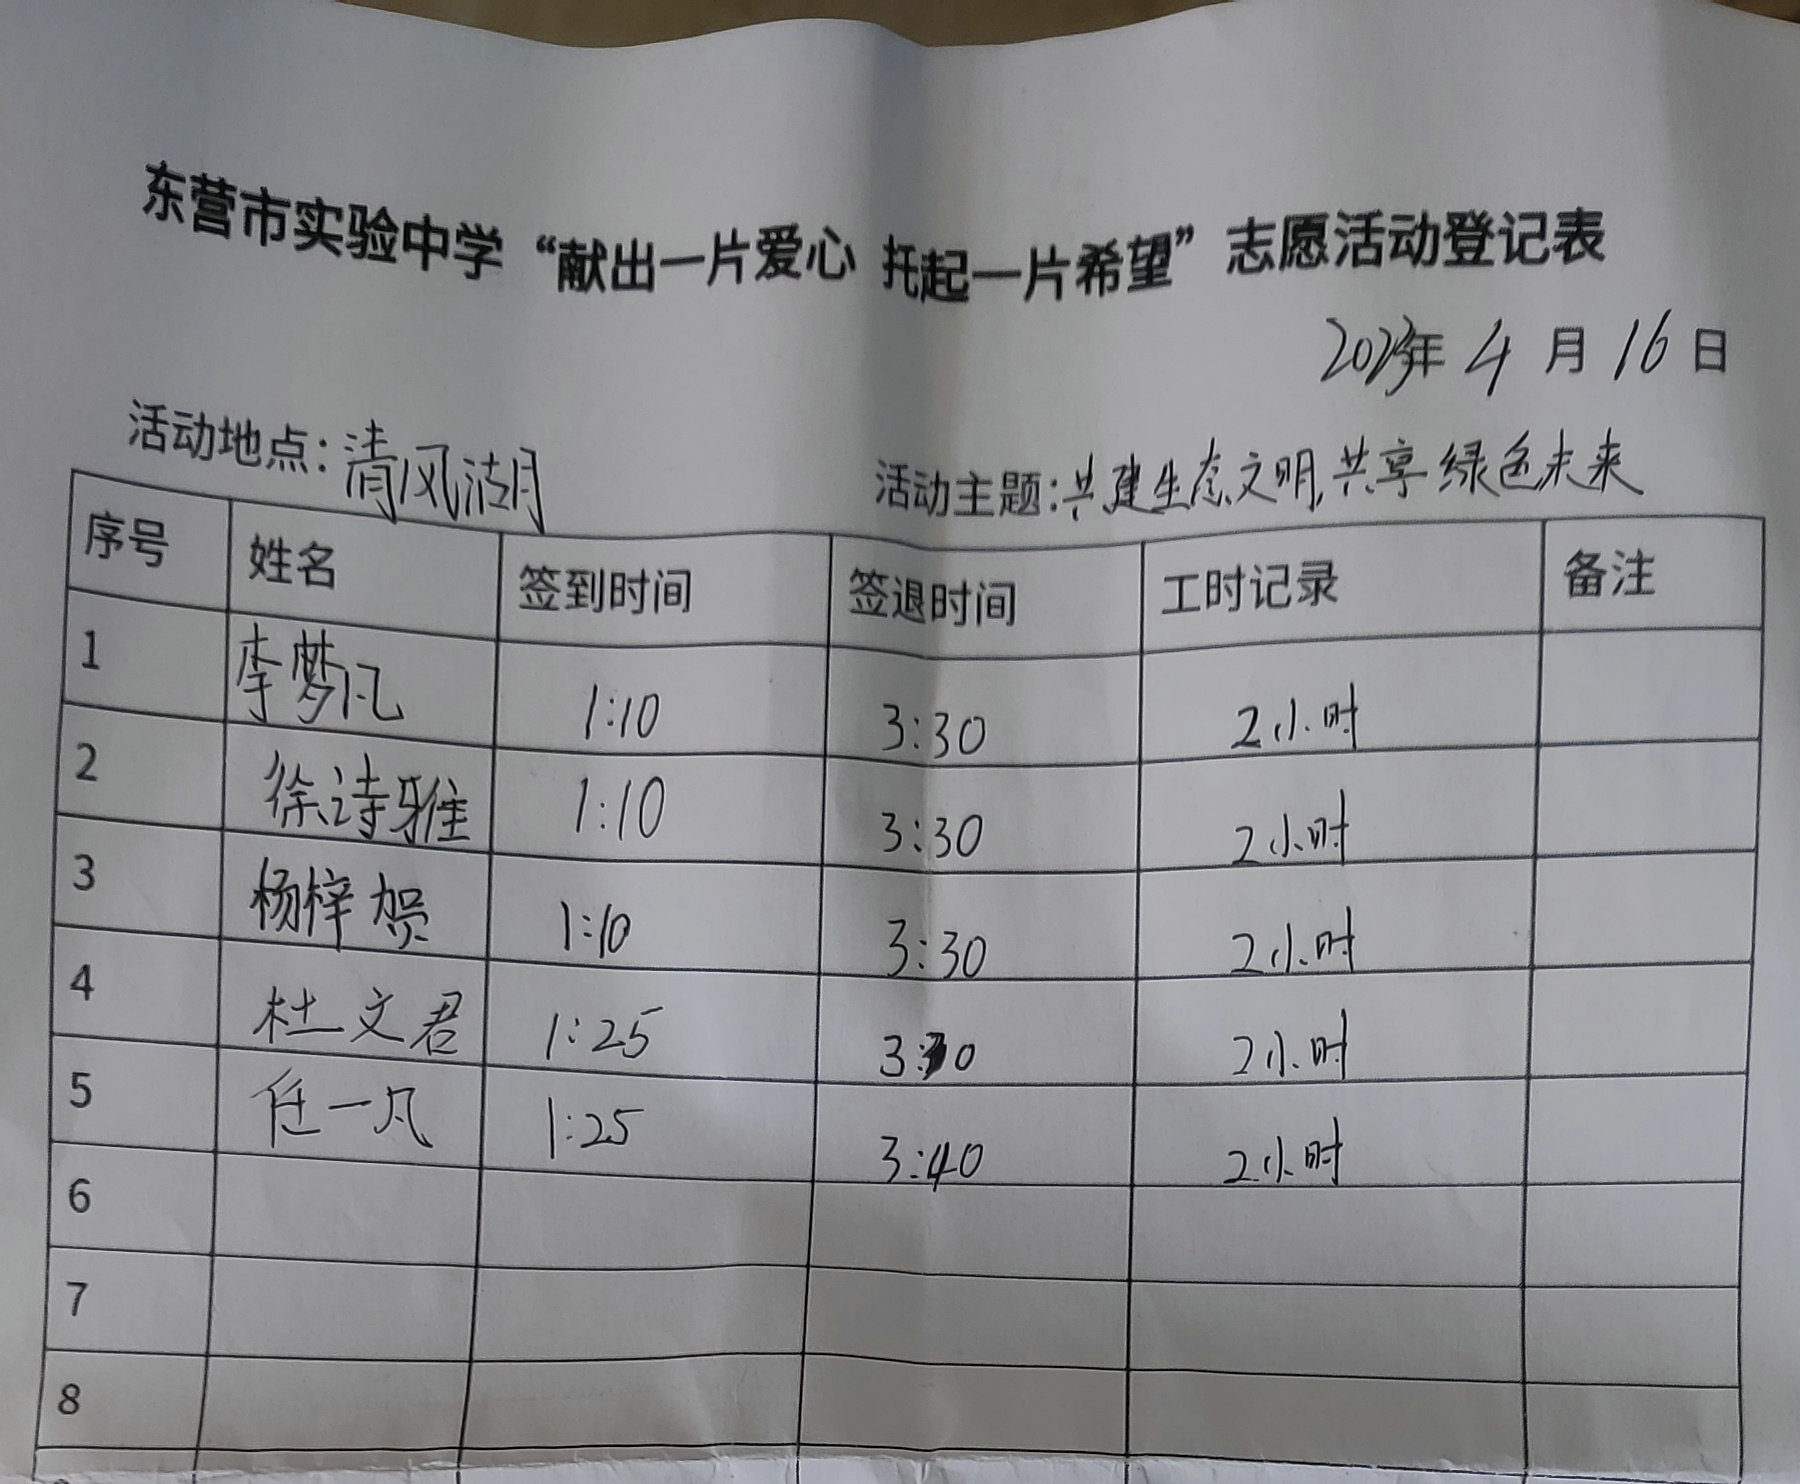 东营市实验中学“献出一片爱心 托起一片希望”志愿活动登记表
2023年 4 月 16 日
活动地点:清风湖 活动主题:共建生态文明,共享绿色未来
序号 姓名 签到时间 签退时间 工时记录 备注
1 李梦凡 1:10 3:30 2小时
2 徐诗雅 1:10 3:30 2小时
3 杨梓贺 1:10 3:30 2小时
4 杜文君 1:25 3:30 2小时
5 任一凡 1:25 3:40 2小时
6
7
8